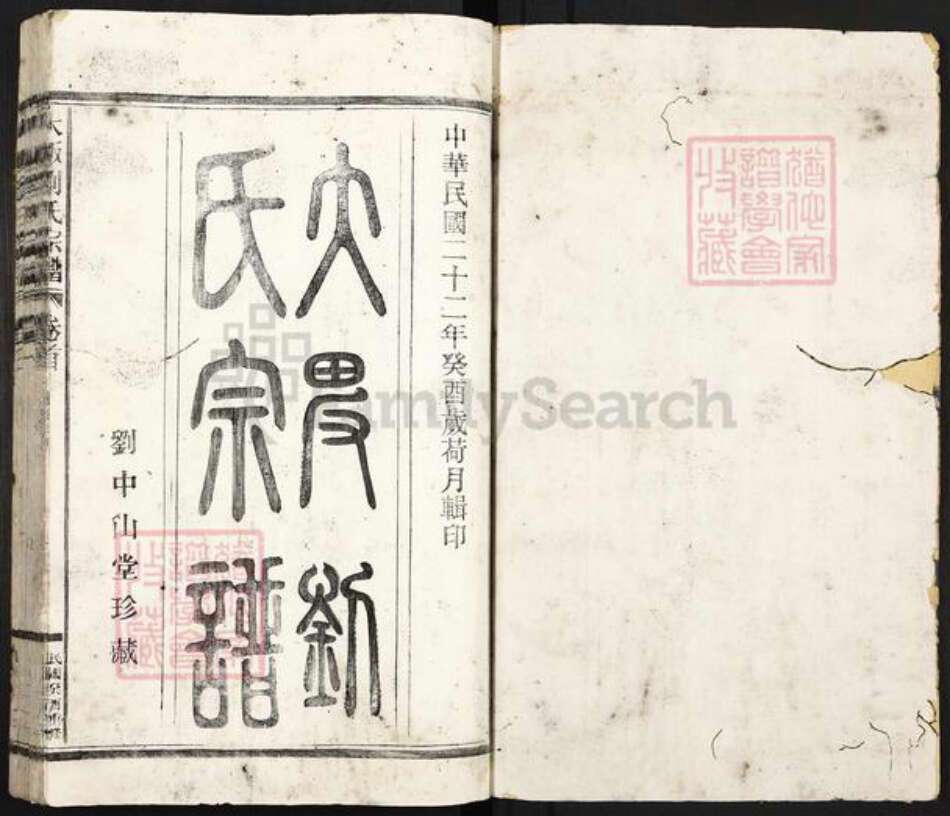 猶他家
譜學會
收藏
中華民國二十二年癸酉歲荷月輯印
大劉
氏宗譜
劉中山堂珍藏
劉氏宗譜 卷首
FamilySearch